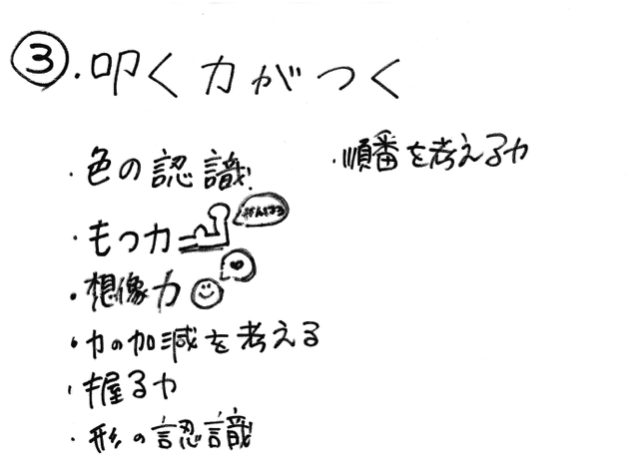 ③.叩く力がつく
・色の認識
・順番を考える力
・もつ力
がんばる
・想像力
・力の加減を考える
・握る力
・形の認識